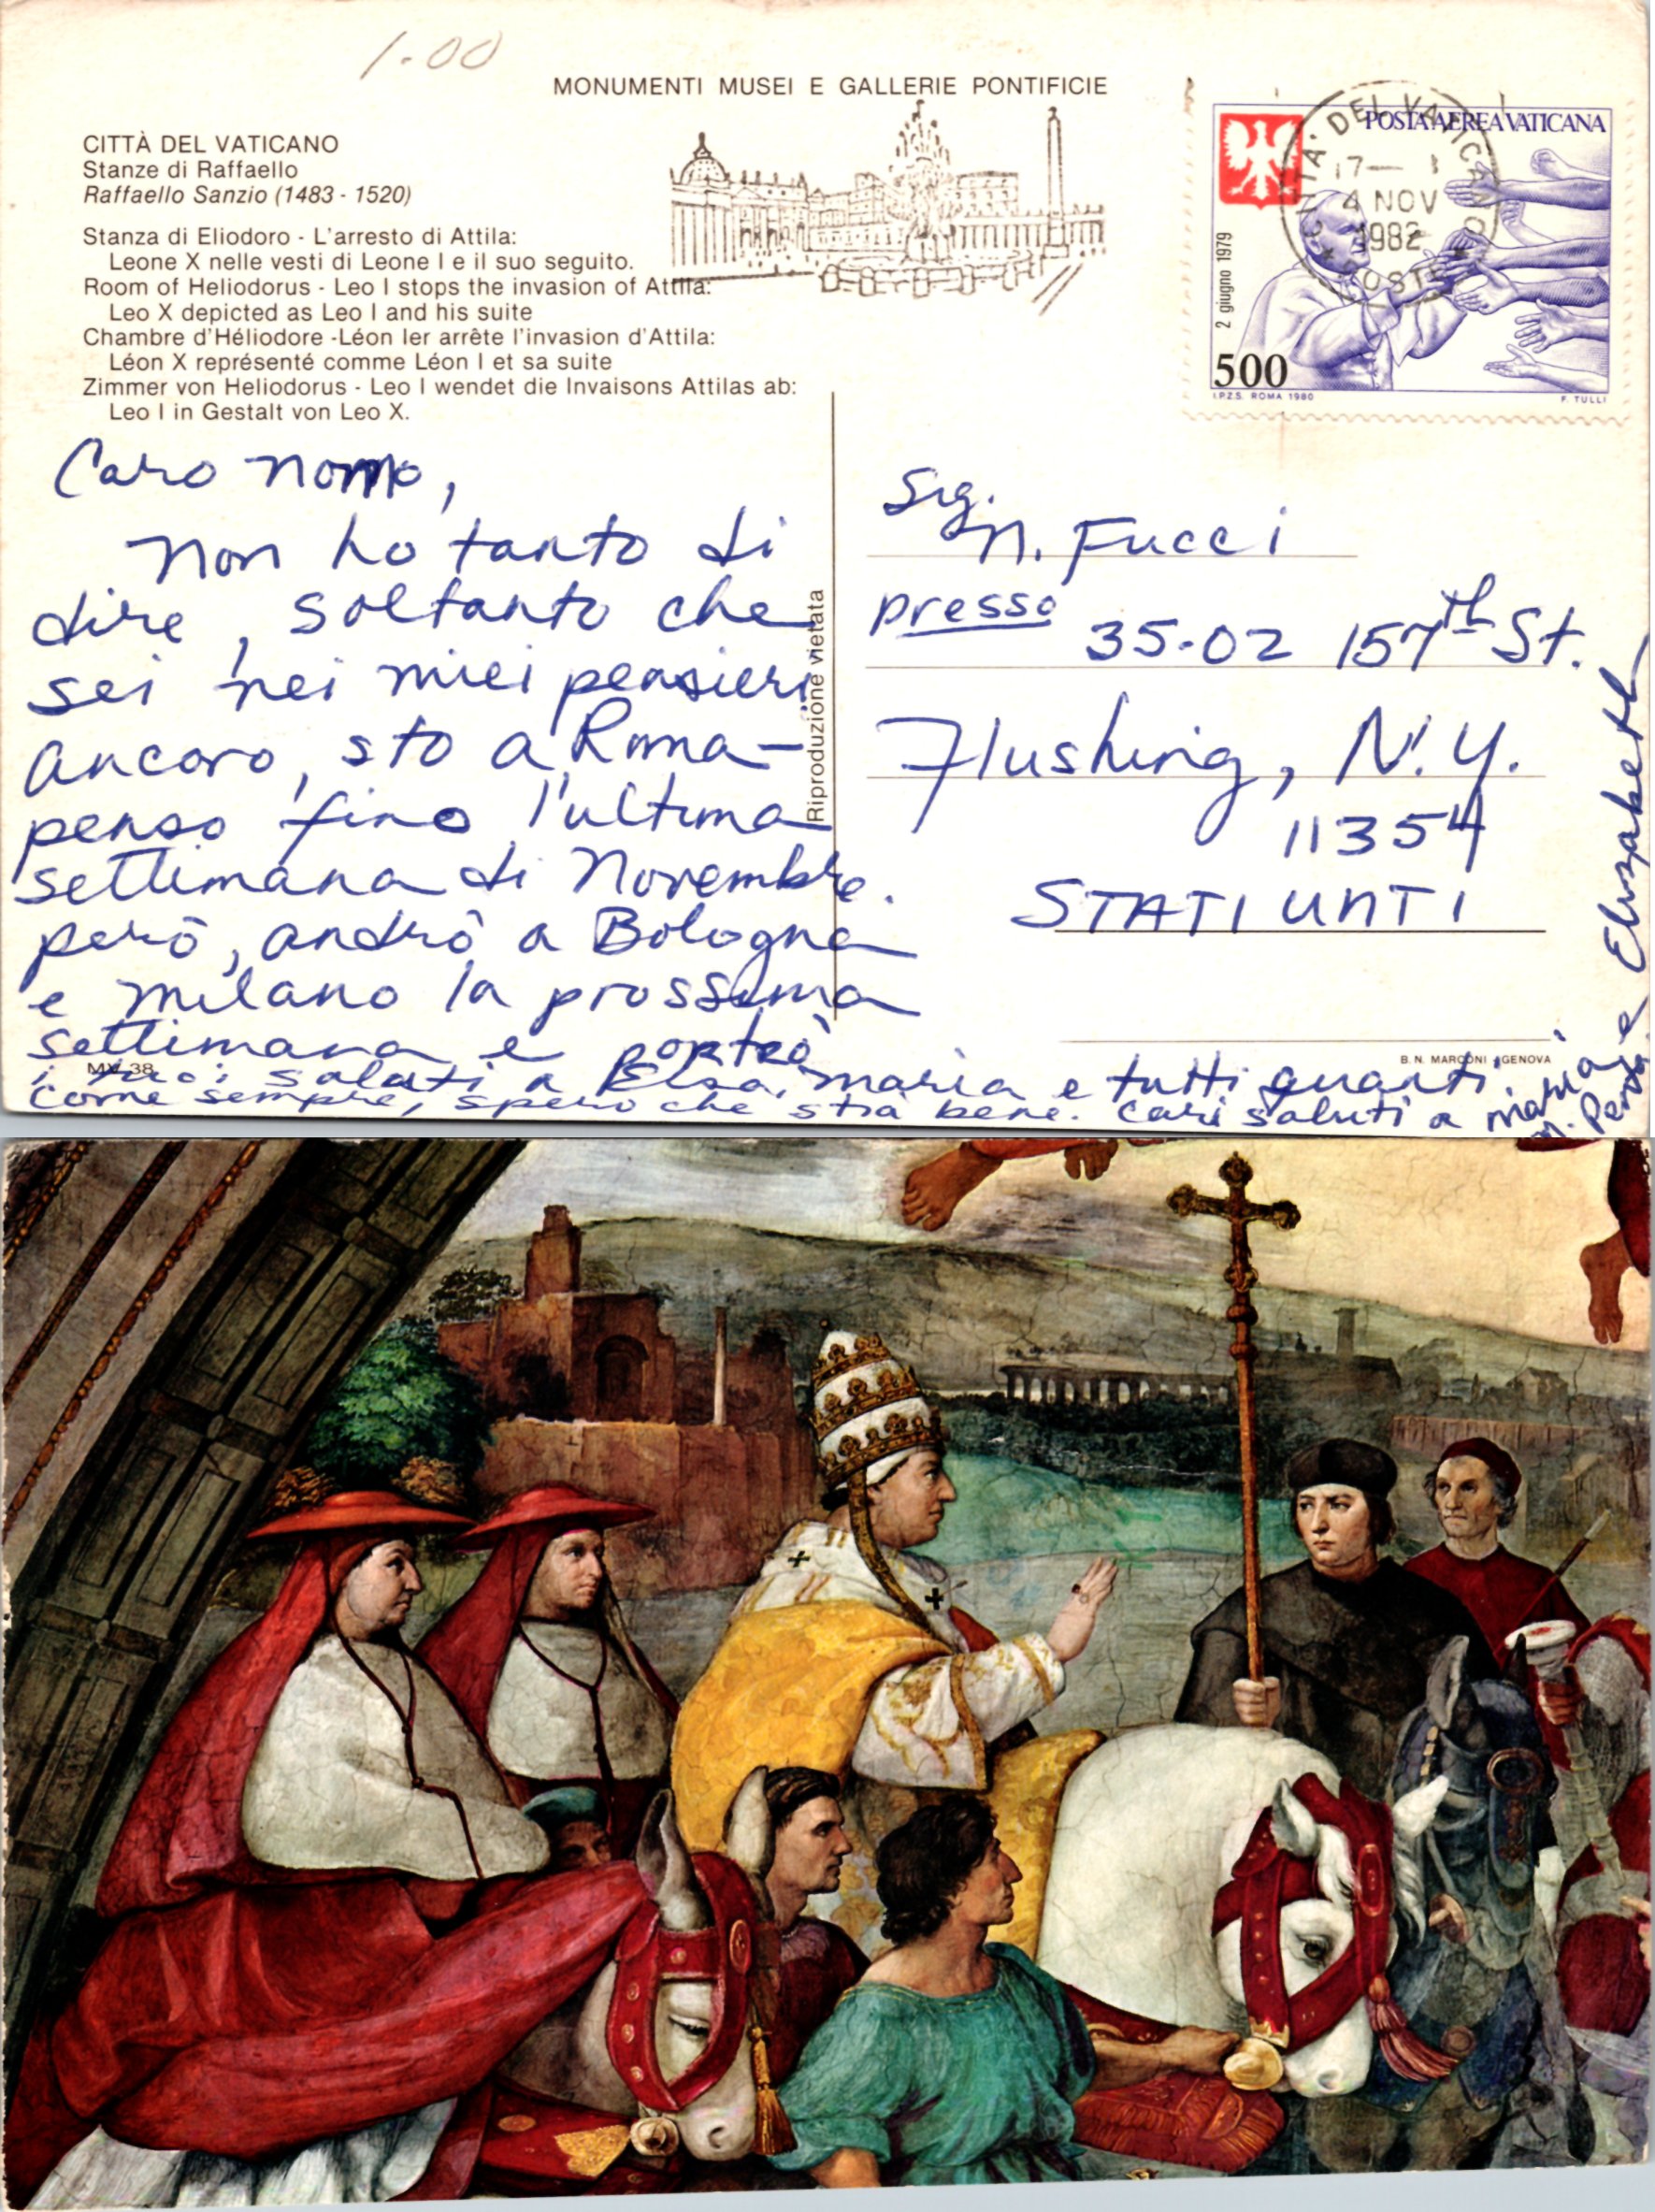 1.00
MONUMENTI MUSEI E GALLERIE PONTIFICIE
CITTÀ DEL VATICANO
Stanze di Raffaello
Raffaello Sanzio (1483 - 1520)
Stanza di Eliodoro - L'arresto di Attila:
Leone X nelle vesti di Leone I e il suo seguito.
Room of Heliodorus - Leo I stops the invasion of Attila:
Leo X depicted as Leo I and his suite
Chambre d'Héliodore -Léon Ier arrête l'invasion d'Attila:
Léon X représenté comme Léon I et sa suite
Zimmer von Heliodorus - Leo I wendet die Invaisons Attilas ab:
Leo I in Gestalt von Leo X.
POSTA AEREA VATICANA
2 giugno 1979
500
I.P.Z.S. ROMA 1980
F. TULLI
CITTA' DEL VATICANO
17—
4 NOV
1982
POSTE
Caro nonno,
Non ho tanto di
dire, soltanto che
sei nei miei pensieri
ancoro, sto a Roma—
penso fino l'ultima
settimana di Novembre.
però, andrò a Bologna
e Milano la prossima
settimana e portrò
i tuoi saluti a Elsa, Maria e tutti quanti.
Come sempre, spero che stia bene. Cari saluti a Maria
e Elizabeth
Riproduzione vietata
Sig.
N. Fucci
presso
35-02 157th St.
Flushing, N.Y.
11354
STATI UNITI
MV 38
B. N. MARCONI - GENOVA